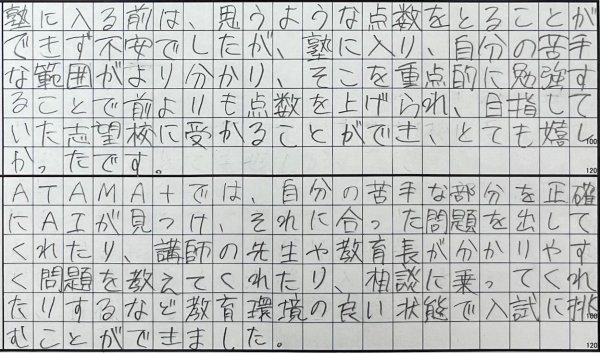 塾に入る前は、思うような点数をとることが
できず不安でしたが、塾に入り、自分の苦手
な範囲がより分かり、そこを重点的に勉強す
ることで前よりも点数を上げられ、目指して
いた志望校に受かることができ、とても嬉し
かったです。
100
120
ATAMA+では、自分の苦手な部分を正確
にAIが見つけ、それに合った問題を出して
くれたり、講師の先生や教育長が分かりやす
く問題を教えてくれたり、相談に乗ってくれ
たりするなど教育環境の良い状態で入試に挑
むことができました。
100
120